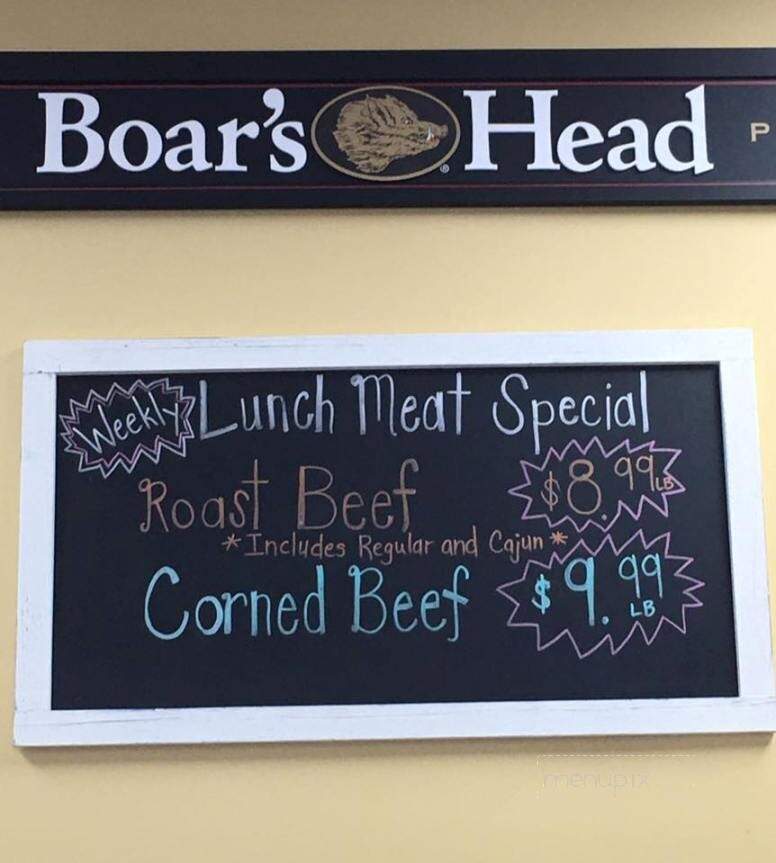 Boar's Head P
Weekly Lunch Meat Special
Roast Beef $8.99 LB
*Includes Regular and Cajun*
Corned Beef $9.99 LB
menupix